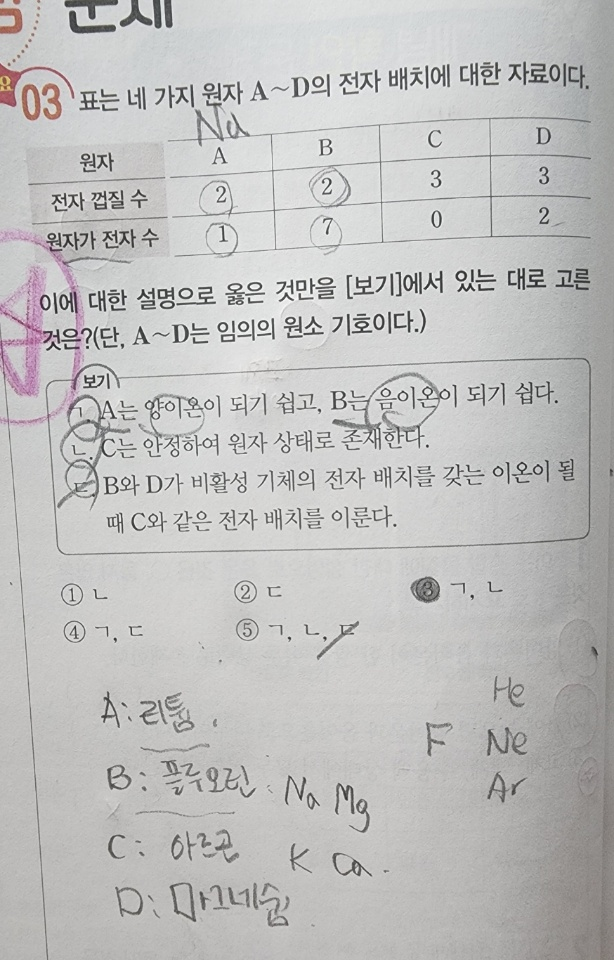 문제
03 표는 네 가지 원자 A~D의 전자 배치에 대한 자료이다.
Na
원자 A B C D
전자 껍질 수 2 2 3 3
원자가 전자 수 1 7 0 2
이에 대한 설명으로 옳은 것만을 [보기]에서 있는 대로 고른
것은?(단, A~D는 임의의 원소 기호이다.)
보기
ㄱ. A는 양이온이 되기 쉽고, B는 음이온이 되기 쉽다.
ㄴ. C는 안정하여 원자 상태로 존재한다.
ㄷ. B와 D가 비활성 기체의 전자 배치를 갖는 이온이 될
때 C와 같은 전자 배치를 이룬다.
① ㄴ ② ㄷ ③ ㄱ, ㄴ
④ ㄱ, ㄷ ⑤ ㄱ, ㄴ, ㄷ
A: 리튬.
B: 플루오린
C: 아르곤
D: 마그네슘
Na Mg
K Ca.
He
F Ne
Ar